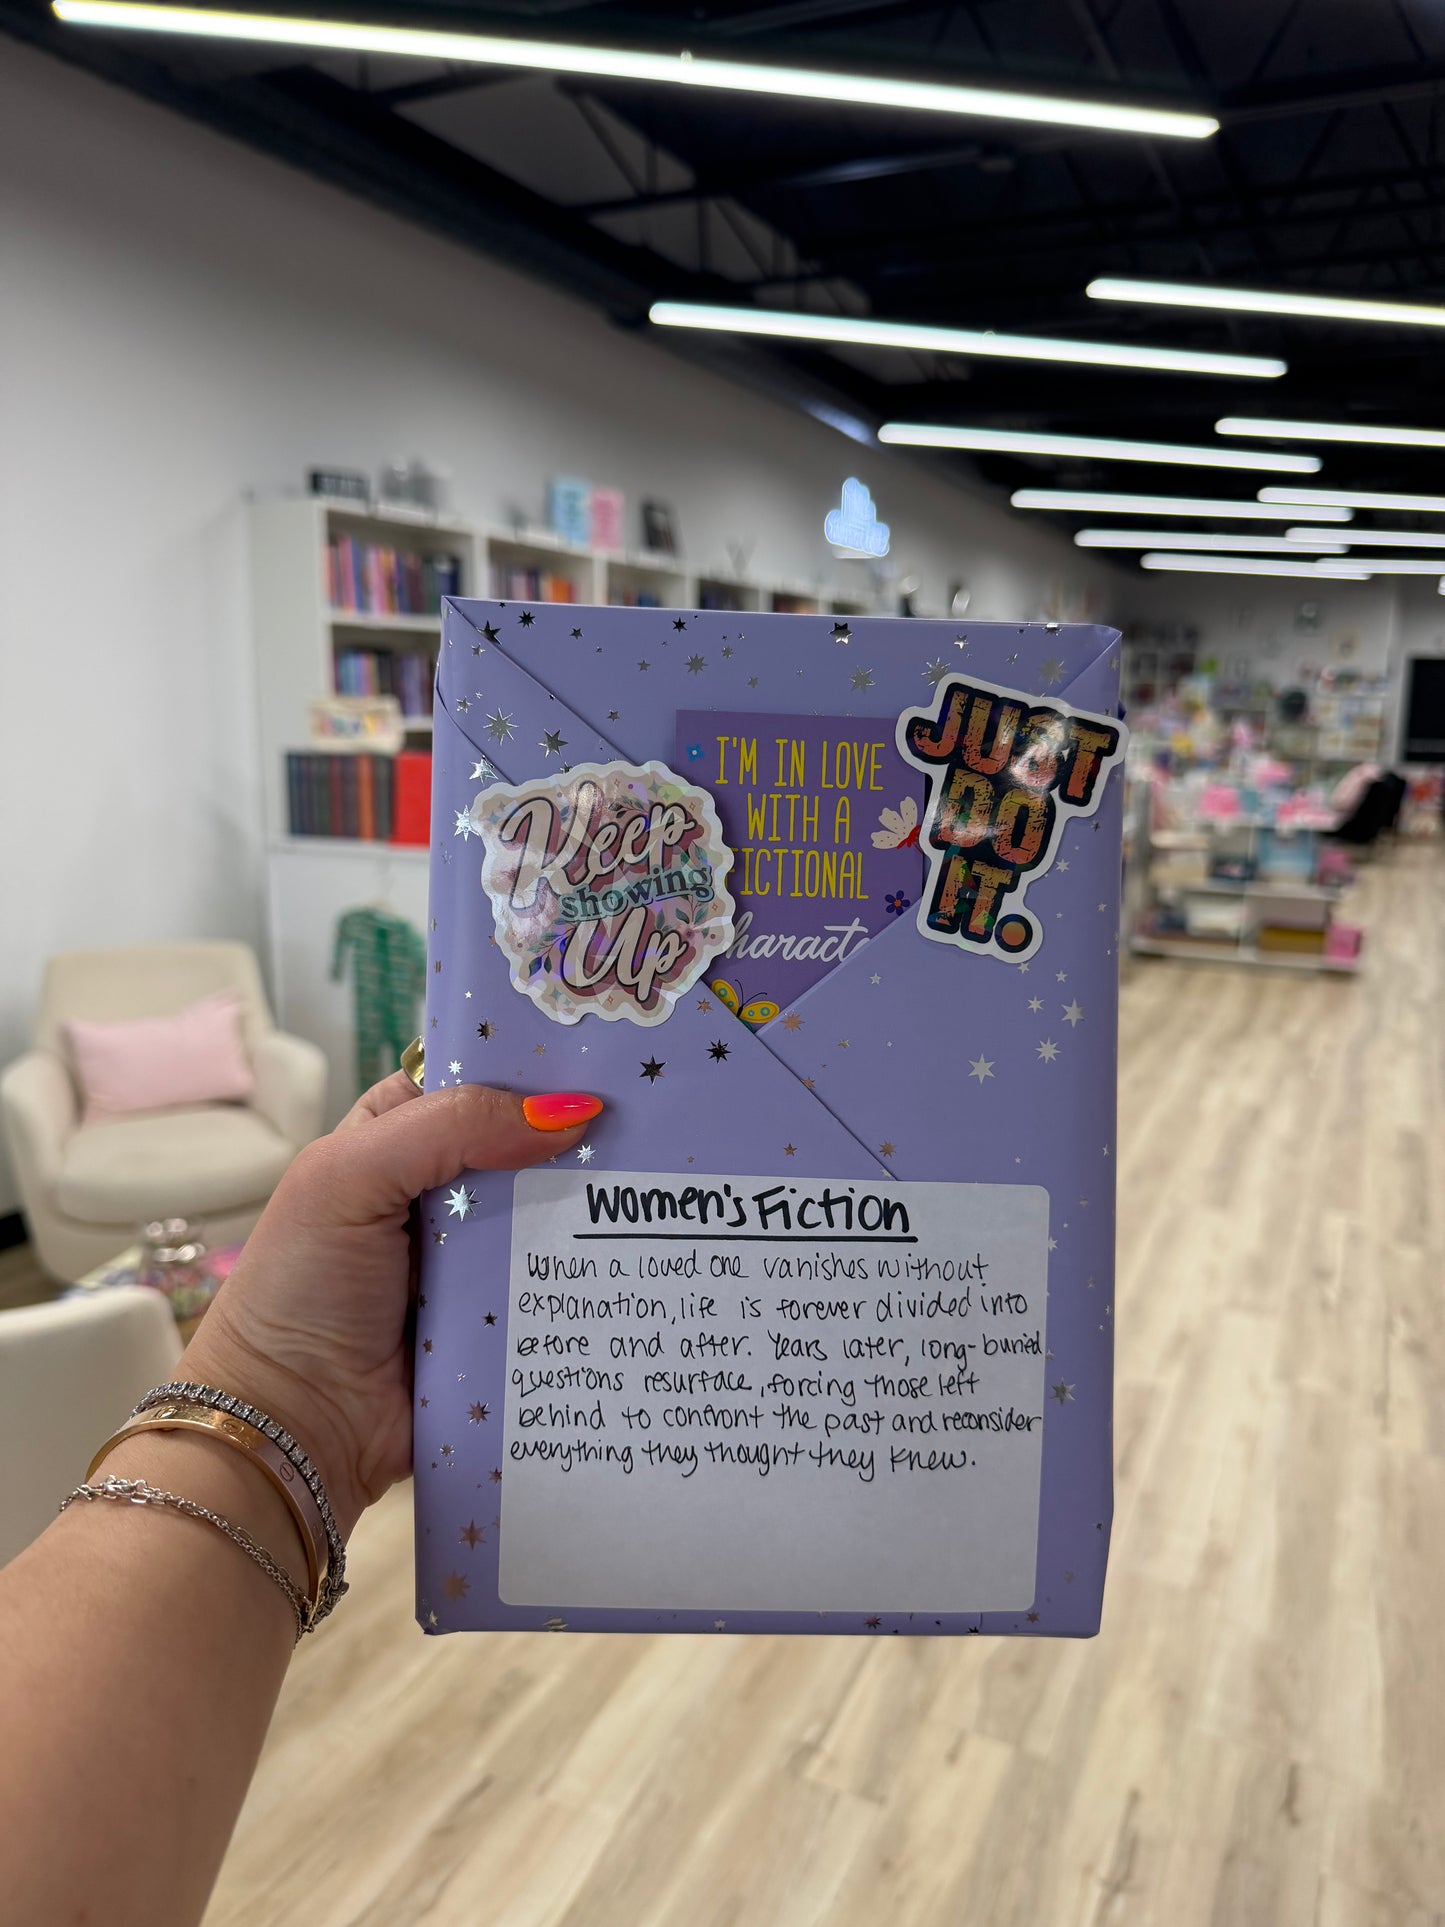 I'M IN LOVE
WITH A
FICTIONAL
characte
JUST
DO
IT.
Keep
showing
Up
Women's Fiction
When a loved one vanishes without
explanation, life is forever divided into
before and after. Years later, long-buried
questions resurface, forcing those left
behind to confront the past and reconsider
everything they thought they knew.